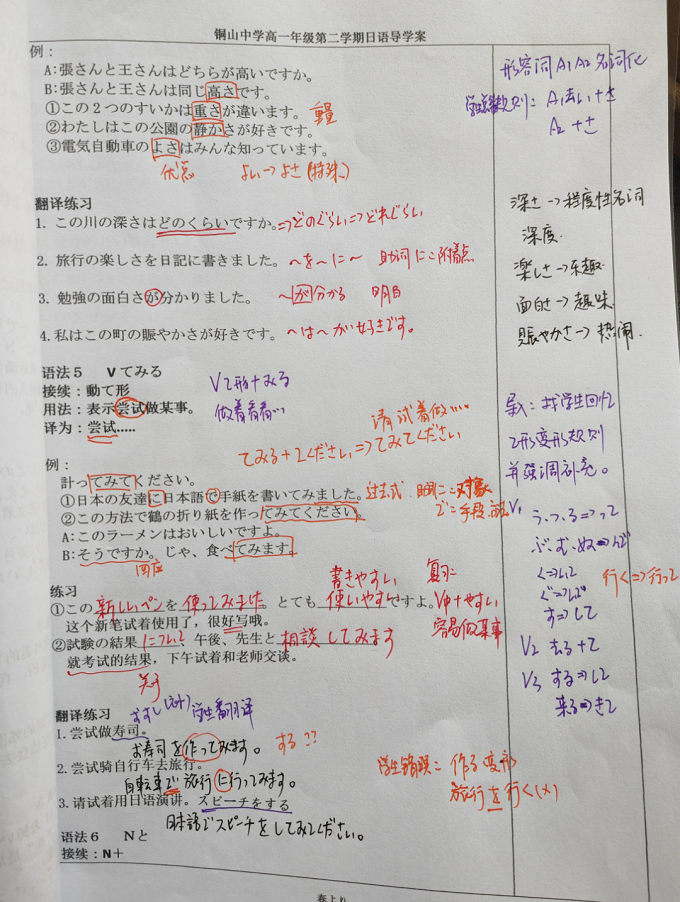 铜山中学高一年级第二学期日语导学案
例：
A:張さんと王さんはどちらが高いですか。
B:張さんと王さんは同じ高さです。
①この２つのすいかは重さが違います。 重量
②わたしはこの公園の静かさが好きです。
③電気自動車のよさはみんな知っています。
优点 よい→よさ(特殊)
翻译练习
1. この川の深さはどのくらいですか。⇒どのぐらい⇒どれぐらい
2. 旅行の楽しさを日記に書きました。 ～を～に～ 助词に：附着点
3. 勉強の面白さが分かりました。 ～が分かる 明白
4.私はこの町の賑やかさが好きです。 ～は～が好きです。
语法５ Ｖてみる
接续：動て形 Vて形+みる
用法：表示尝试做某事。 做着看看…
译为：尝试..... 请试着做….
てみる+てください⇒てみてください
例：
計ってみてください。
①日本の友達に日本語で手紙を書いてみました。过去式 助词に：对象
で：手段、方法
②この方法で鶴の折り紙を作ってみてください。
A:このラーメンはおいしいですよ。
B:そうですか。じゃ、食べてみます。
回应
書きやすい 复习：
练习
①この 新しいペン を 使ってみました。とても 使いやすい ですよ。V中+やすい
这个新笔试着使用了，很好写哦。 容易做某事
②試験の結果 について 、午後、先生と 相談 してみます
就考试的结果，下午试着和老师交谈。
关于
翻译练习 学生翻译
1.尝试做寿司。
お寿司を作ってみます。 する??
2.尝试骑自行车去旅行。 学生错误：作る变形
自転車で旅行に行ってみます。 旅行を行く(×)
3.请试着用日语演讲。スピーチをする
日本語でスピーチをしてみてください。
语法６ Ｎと
接续：N＋
形容词A1A2名词化
规则：A1去い+さ
A2+さ
深さ→程度性名词
深度.
楽しさ→乐趣
面白さ→趣味
賑やかさ→热闹.
导入：找学生回忆
て形变形规则
并强调补充。
V1 う.つ.る⇒って
ぶ.む.ぬ⇒んで
く⇒いて 行く⇒行って
ぐ⇒いで
す⇒して
V2 去る+て
V3 する⇒して
来る⇒きて